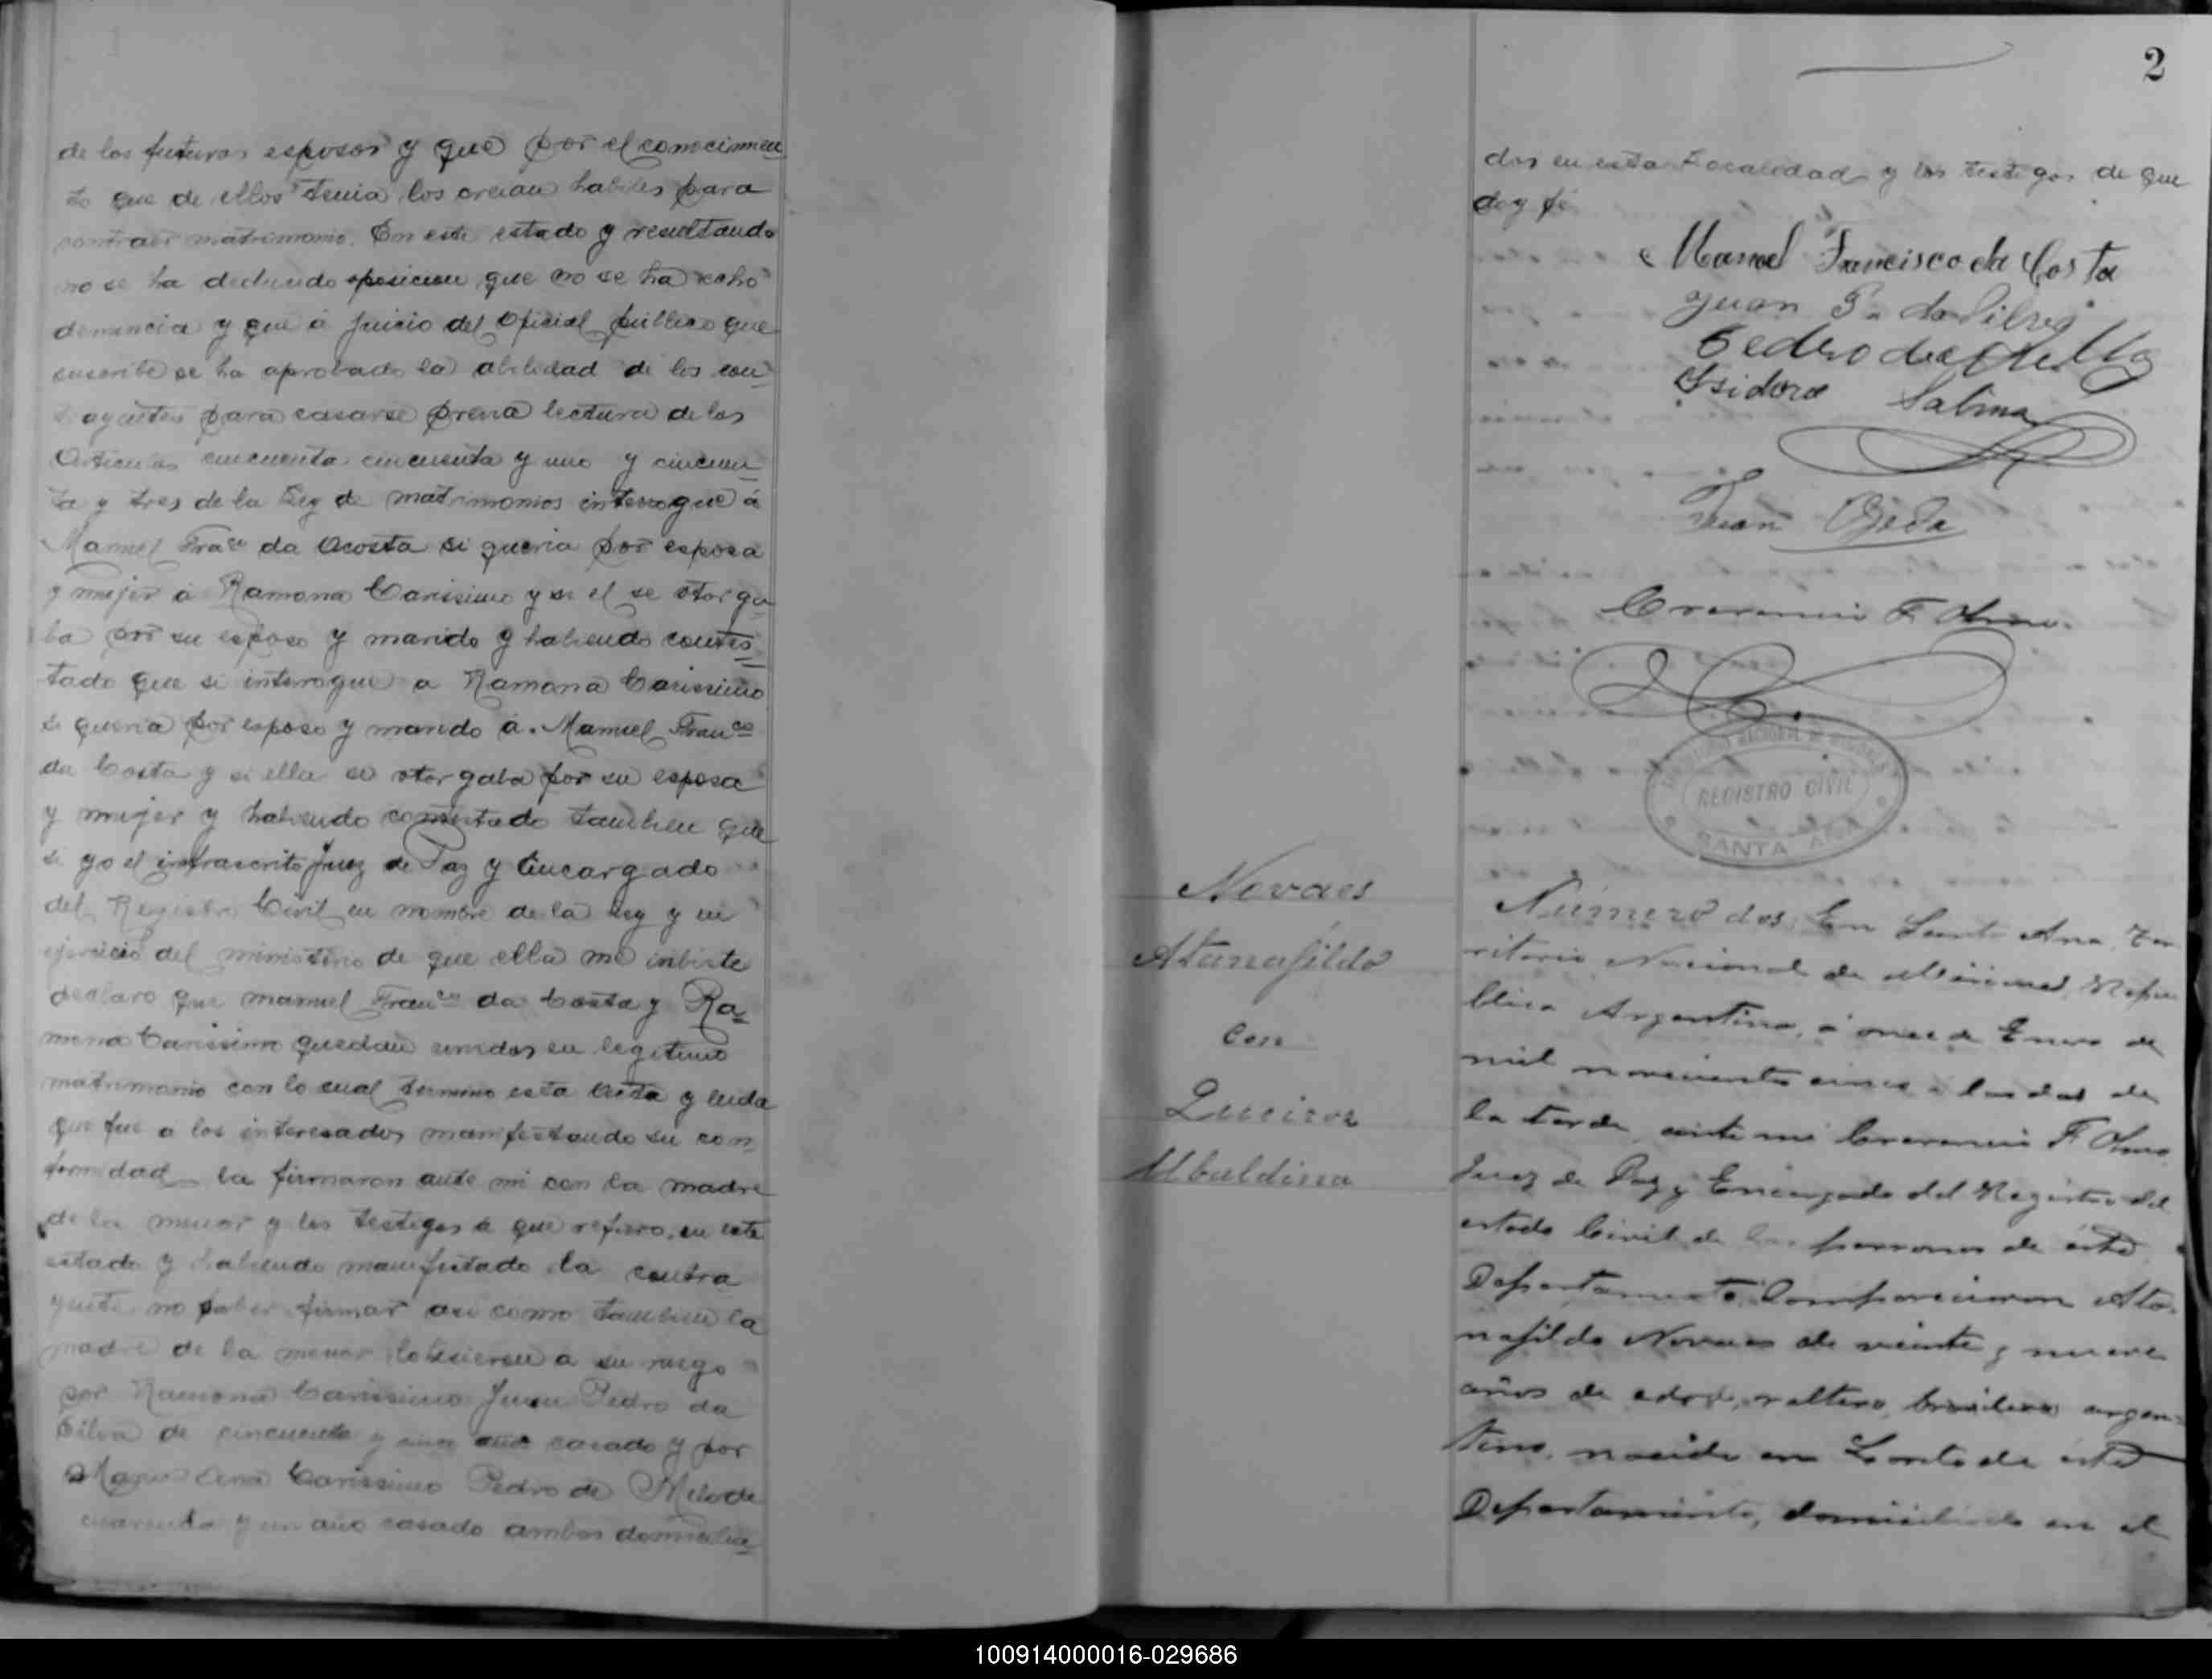 de los futuros esposos y que por el conocimien
to que de ellos tenia los creian habiles para
contraer matrimonio. En este estado y resultando
no se ha deducido oposicion que no se ha echo
denuncia y que á juicio del Oficial público que
suscribe se ha aprobado la abilidad de los con
trayentes para casarse previa lectura de los
Articulos cincuenta cincuenta y uno y cincuen
ta y tres de la Ley de matrimonios interrogué á
Manuel Franco da Acosta si queria por esposa
y mujer á Ramona Carissimo y si el se otorga
ba por su esposo y marido y habiendo contes
tado que si interrogue a Ramona Carissimo
si queria por esposo y marido á Manuel Franco
da Costa y si ella se otorgaba por su esposa
y mujer y habiendo contestado tambien que
si yo el infrascrito Juez de Paz y Encargado
del Registro Civil en nombre de la Ley y en
ejercicio del ministerio de que ella me inbiste
declaro que manuel Franco da Costa y Ra
mona Carissimo quedan unidos en legitimo
matrimonio con lo cual termino esta acta y leida
que fue a los interesados manifestando su con
formidad la firmaron ante mi con la madre
de la menor y los testigos á que refiero, en este
estado y habiendo manifestado la contra
yente no saber firmar asi como tambien la
madre de la menor lo hicieron a su ruego
por Ramona Carissimo Juan Pedro da
Silva de cincuenta y años casado y por
Carissimo Pedro de Melo de
cuarenta y un año casado ambos domicilia
2
dos en esta Localidad y los testigos de que
doy fé
Manoel Francisco da Costa
Juan P. da Silva
Pedro de Mello
Isidoro Salina
Juan Ojeda
F.
REGISTRO CIVIL
SANTA ANA
Novaes
Atanagildo
con
Queiroz
Ubaldina
Número dos: En Santa Ana, Te
rritorio Nacional de Misiones, Repu
blica Argentina, á once de Enero de
mil novecientos cinco á las dos de
la tarde, ante mi F.
Juez de Paz y Encargado del Registro del
estado Civil de las personas de éste
Departamento: Comparecieron Ata
nagildo Novaes de veinte y nueve
años de edad, soltero, brasilero argen
tino, nacido en Loreto de éste
Departamento, domiciliado en el